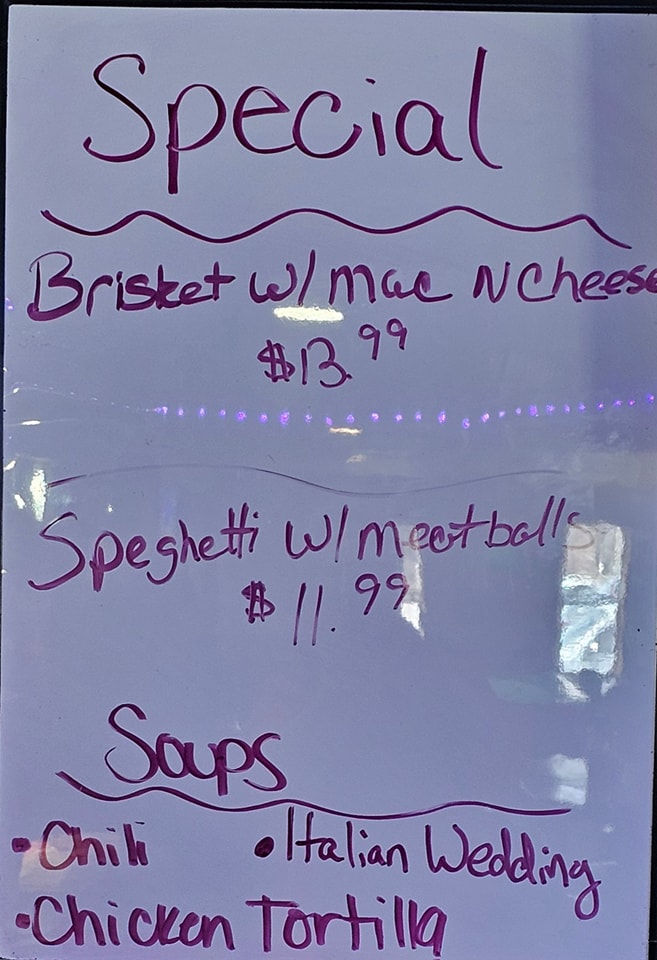 Special
Brisket w/ mac N Cheese
$13.99
Speghetti w/ meatballs
$11.99
Soups
• Chili • Italian Wedding
• Chicken Tortilla